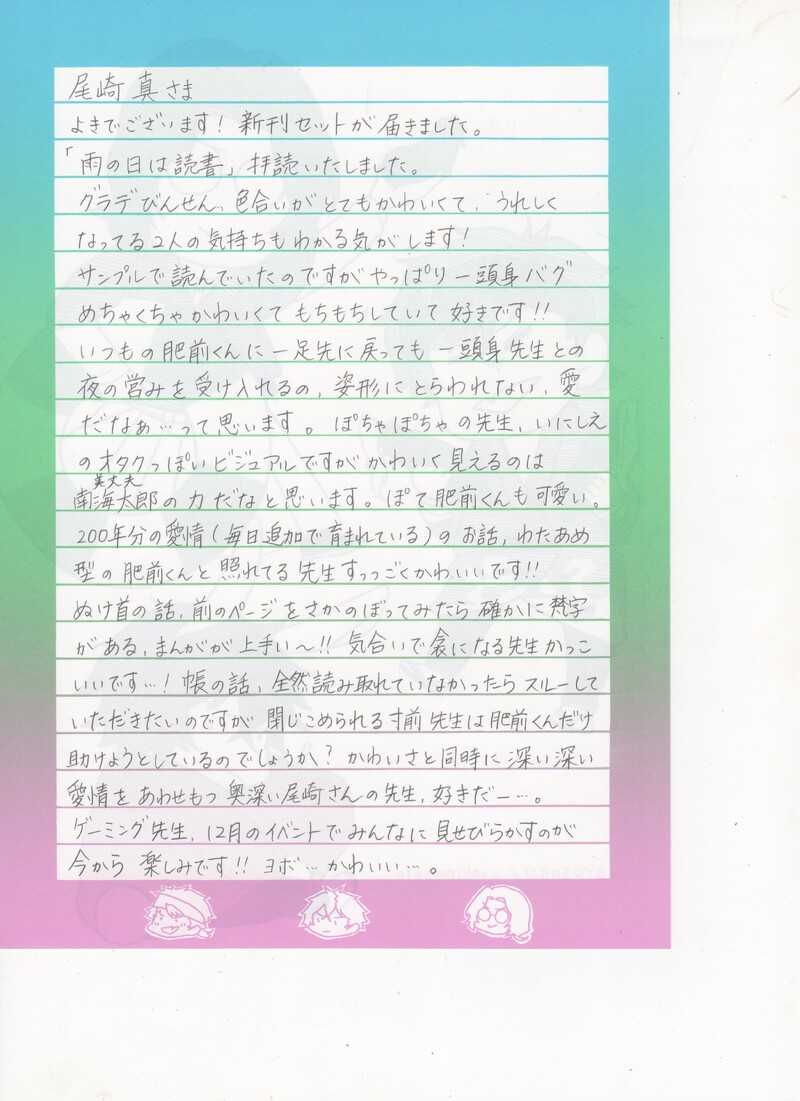 尾崎 真さま
よきでございます! 新刊セットが届きました。
「雨の日は読書」拝読いたしました。
グラデびんせん、色合いがとてもかわいくて、うれしく
なってる2人の気持ちもわかる気がします!
サンプルで読んでいたのですがやっぱり一頭身バグ
めちゃくちゃかわいくてもちもちしていて好きです!!
いつもの肥前くんに一足先に戻っても一頭身先生との
夜の営みを受け入れるの、姿形にとらわれない、愛
だなぁ…って思います。ぽちゃぽちゃの先生、いにしえ
のオタクっぽいビジュアルですがかわいく見えるのは
美丈夫
南海太郎の力だなと思います。ぽて肥前くんも可愛い。
200年分の愛情(毎日追加で育まれている)のお話、わたあめ
型の肥前くんと照れてる先生すっっごくかわいいです!!
ぬけ首の話、前のページをさかのぼってみたら確かに梵字
がある、まんがが上手い〜!! 気合いで衾になる先生かっこ
いいです…! 帳の話、全然読み取れていなかったらスルーして
いただきたいのですが閉じこめられる寸前先生は肥前くんだけ
助けようとしているのでしょうか? かわいさと同時に深い深い
愛情をあわせもつ奥深い尾崎さんの先生、好きだー…。
ゲーミング先生、12月のイベントでみんなに見せびらかすのが
今から楽しみです!! ヨボ…かわいい…。